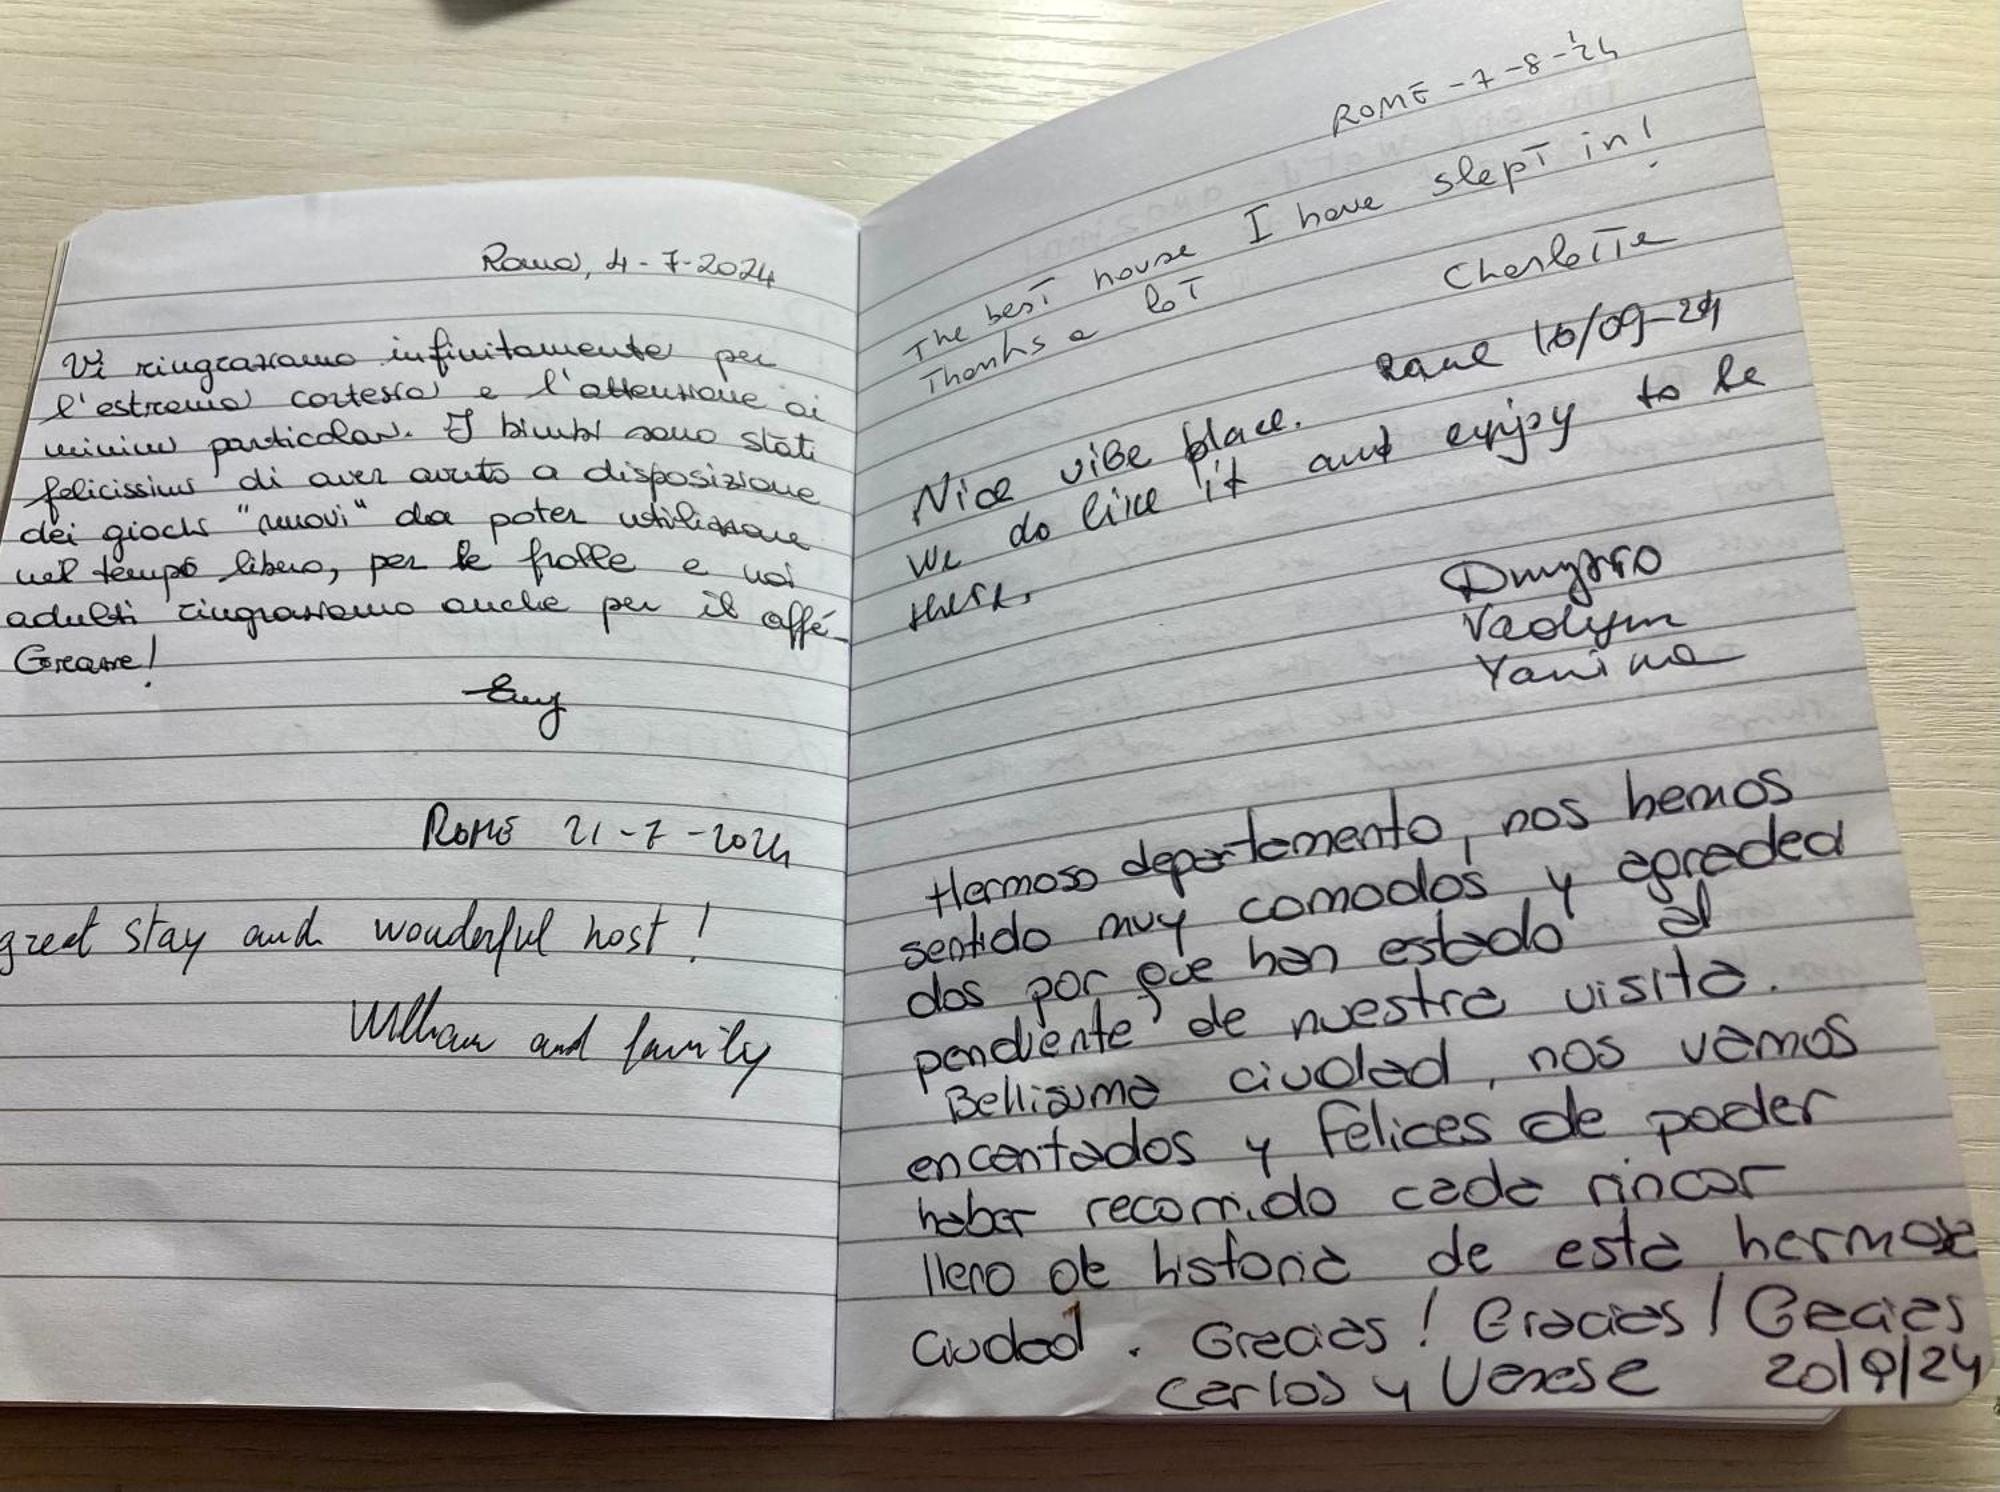 Roma, 4-7-2024
Vi ringraziamo infinitamente per
l'estrema cortesia e l'attenzione ai
minimi particolari. I bimbi sono stati
felicissimi di aver avuto a disposizione
dei giochi "nuovi" da poter utilizzare
nel tempo libero, per le frolle e noi
adulti ringraziamo anche per il affé.
Grazie!
ROME 21-7-2024
great stay and wonderful host!
William and family
ROME -7-8-'24
The best house I have slept in!
Thanks a lot
Charlotte
16/09-24
Nice vibe place.
We do like it and enjoy to be
there.
Dmytro
Vadym
Yanina
Hermoso departamento, nos hemos
sentido muy comodos y agradeci
dos por que han estado al
pendiente de nuestra visita.
Bellisima ciudad, nos vamos
encantados y felices de poder
haber recorrido cada rincor
lleno de historia de esta hermosa
ciudad. Gracias! Gracias! Gracias
Carlos y 20/9/24